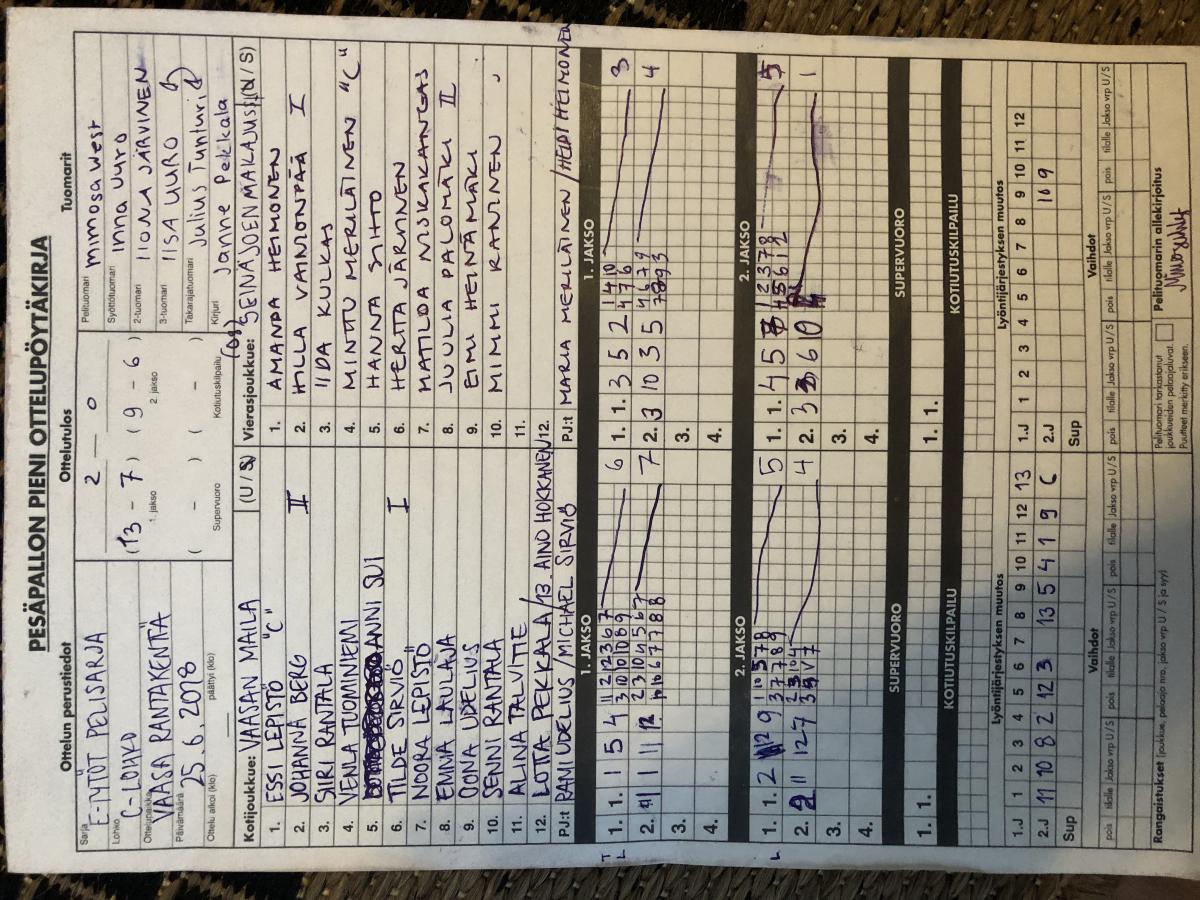 PESÄPALLON PIENI OTTELUPÖYTÄKIRJA
Ottelun perustiedot
Sarja E-TYTÖT PELISARJA
Lohko C-LOHKO
Ottelupaikka VAASA RANTAKENTTÄ
Päivämäärä 25.6.2018
Ottelu alkoi (klo) päättyi (klo)
Ottelutulos
2 — 0
(13 - 7) (9 - 6)
1. jakso 2. jakso
( - ) ( - )
Supervuoro Kotiutuskilpailu
Tuomarit
Pelituomari Mimosa West
Syöttötuomari Inna Uuro
2-tuomari IIONA JÄRVINEN
3-tuomari IISA UURO
Takarajatuomari Julius Tunturi
Kirjuri Janne Pekkala
Kotijoukkue: VAASAN MAILA (U / S)
1. ESSI LEPISTÖ "C"
2. JOHANNA BERG II
3. SIIRI RANTALA
4. VENLA TUOMINIEMI
5. ANNI SUI
6. TILDE SIRVIÖ I
7. NOORA LEPISTÖ
8. EMMA LAULAJA
9. OONA UDELIUS
10. SENNI RANTALA
11. ALINA TALVITIE
12. LOTTA PEKKALA/13. AINO HOKKANEN
PJ:t RAMI UDELIUS/MICHAEL SIRVIÖ
Vierasjoukkue: SEINÄJOEN MAILA-JUSSIT (U / S)
1. AMANDA HEIMONEN
2. HILLA VAINIONPÄÄ I
3. IIDA KULKAS
4. MINTTU MERILÄINEN "C"
5. HANNA SIHTO
6. HERTTA JÄRVINEN
7. MATILDA NISKAKANGAS
8. JUULIA PALOMÄKI II
9. EIMI HEINÄMÄKI
10. MIMMI RANINEN
11.
12.
PJ:t MARIA MERILÄINEN /HEIDI HEIMONEN
1. JAKSO
1. 1. 1 5 4 6
2. 1 11 12 7
3.
4.
1. JAKSO
1. 1. 3 5 2 3
2. 3 10 3 5 4
3.
4.
2. JAKSO
1. 1. 2 12 9 5
2. 2 11 12 4
3.
4.
2. JAKSO
1. 1. 4 5 5
2. 3 6 10 1
3.
4.
SUPERVUORO
1. 1.
SUPERVUORO
1. 1.
KOTIUTUSKILPAILU
KOTIUTUSKILPAILU
Lyöntijärjestyksen muutos
1.J 1 2 3 4 5 6 7 8 9 10 11 12 13
2.J 11 10 8 2 12 3 13 5 4 1 9 6
Sup
Vaihdot
pois tilalle Jakso vrp U / S pois tilalle Jakso vrp U / S pois tilalle Jakso vrp U / S
Lyöntijärjestyksen muutos
1.J 1 2 3 4 5 6 7 8 9 10 11 12
2.J 10 9
Sup
Vaihdot
pois tilalle Jakso vrp U / S pois tilalle Jakso vrp U / S pois tilalle Jakso vrp U / S
Rangaistukset (joukkue, pelaaja nro, jakso, vrp U / S ja syy)
Pelituomari tarkastanut
joukkueiden pelaajaluvat.
Puutteet merkitty erikseen.
Pelituomarin allekirjoitus